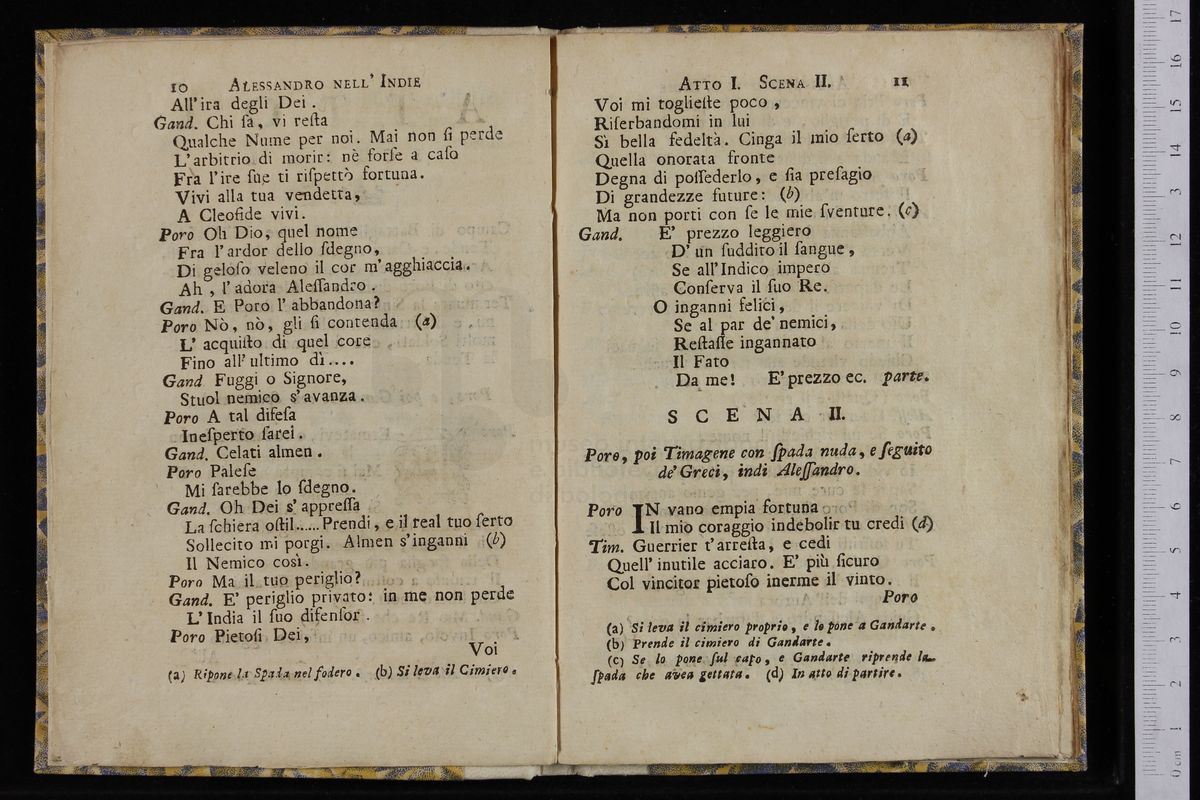 10 ALESSANDRO NELL' INDIE
All'ira degli Dei.
Gand. Chi ſa, vi reſta
Qualche Nume per noi. Mai non ſi perde
L'arbitrio di morir: nè forſe a caſo
Fra l'ire ſue ti riſpettò fortuna.
Vivi alla tua vendetta,
A Cleofide vivi.
Poro Oh Dio, quel nome
Fra l'ardor dello ſdegno,
Di geloſo veleno il cor m'agghiaccia.
Ah, l'adora Aleſſandro.
Gand. E Poro l'abbandona?
Poro Nò, nò, gli ſi contenda (a)
L' acquiſto di quel core
Fino all'ultimo dì....
Gand Fuggi o Signore,
Stuol nemico s'avanza.
Poro A tal difeſa
Ineſperto ſarei.
Gand. Celati almen.
Poro Paleſe
Mi ſarebbe lo ſdegno.
Gand. Oh Dei s'appreſſa
La ſchiera oſtil......Prendi, e il real tuo ſerto
Sollecito mi porgi. Almen s'inganni (b)
Il Nemico così.
Poro Ma il tuo periglio?
Gand. E' periglio privato: in me non perde
L'India il ſuo difenſor.
Poro Pietoſi Dei,
Voi
(a) Ripone la Spada nel fodero. (b) Si leva il Cimiero.
ATTO I. SCENA II. 11
Voi mi toglieſte poco,
Riſerbandomi in lui
Sì bella fedeltà. Cinga il mio ſerto (a)
Quella onorata fronte
Degna di poſſederlo, e ſia preſagio
Di grandezze future: (b)
Ma non porti con ſe le mie ſventure. (c)
Gand. E' prezzo leggiero
D' un ſuddito il ſangue,
Se all'Indico impero
Conſerva il ſuo Re.
O inganni felici,
Se al par de' nemici,
Reſtaſſe ingannato
Il Fato
Da me! E' prezzo ec. parte.
SCENA II.
Poro, poi Timagene con ſpada nuda, e ſeguito
de' Greci, indi Aleſſandro.
Poro IN vano empia fortuna
Il mio coraggio indebolir tu credi (d)
Tim. Guerrier t'arreſta, e cedi
Quell' inutile acciaro. E' più ſicuro
Col vincitor pietoſo inerme il vinto.
Poro
(a) Si leva il cimiero proprio, e lo pone a Gandarte.
(b) Prende il cimiero di Gandarte.
(c) Se lo pone ſul capo, e Gandarte riprende la
ſpada che avea gettata. (d) In atto di partire.
0 cm 1 2 3 4 5 6 7 8 9 10 11 12 13 14 15 16 17